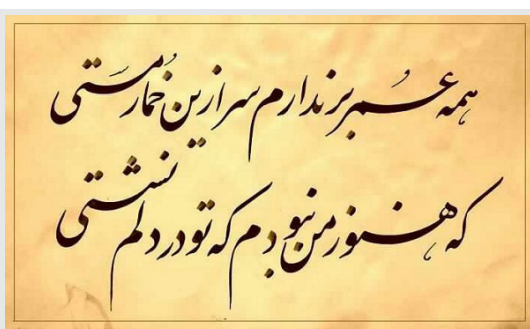 همه عُمر برندارم سر ازین خُمار مَستی
که هنوز من نبودم که تو در دلم نشستی